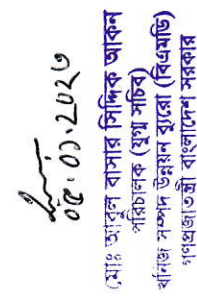 ০৫.০১.২০২৩
(মোঃ আবুল বাসার সিদ্দিক আকন
পরিচালক (যুগ্ম সচিব)
খনিজ সম্পদ উন্নয়ন ব্যুরো (বিএমডি)
গণপ্রজাতন্ত্রী বাংলাদেশ সরকার